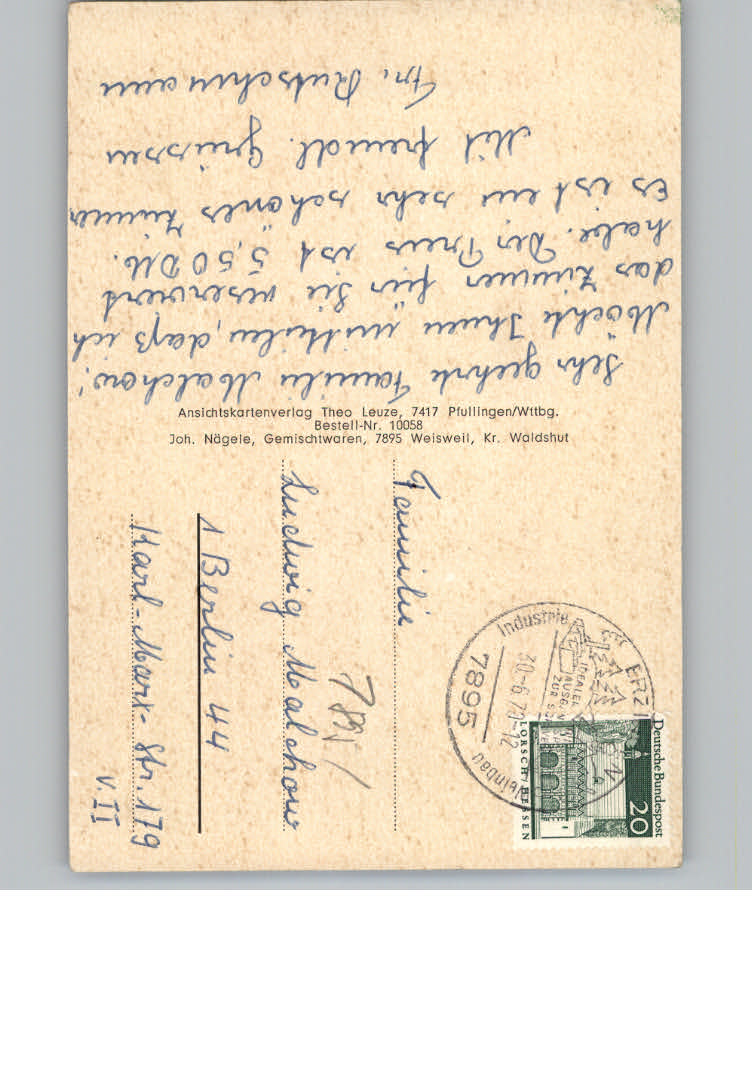 Sehr geehrte Familie Malchow!
Möchte Ihnen mitteilen, daß ich
das Zimmer für Sie reserviert
habe. Der Preis ist 5,50 DM.
Es ist ein sehr schönes Zimmer
Mit freundl. Grüssen
Fr. Rutschmann
Ansichtskartenverlag Theo Leuze, 7417 Pfullingen/Wttbg.
Bestell-Nr. 10058
Joh. Nägele, Gemischtwaren, 7895 Weisweil, Kr. Waldshut
Familie
Ludwig Malchow
1 Berlin 44
Karl-Marx-Str. 179
v. II
Industrie
Weinbau
7895
IDEALER
ZUR
Deutsche Bundespost
20
LORSCH/HESSEN